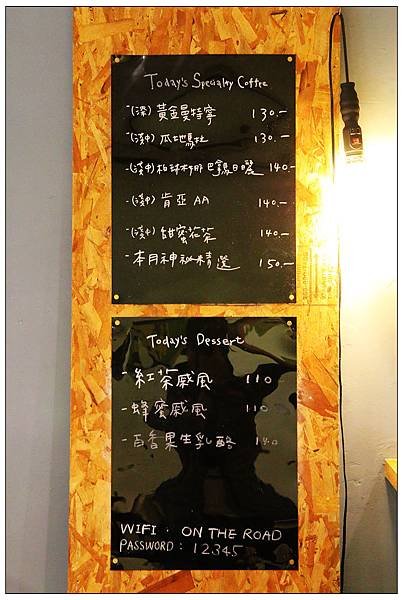 Today's Specialty Coffee
-(深) 黃金曼特寧 130.-
-(淺中) 瓜地馬拉 130.-
-(淺中) 巴拿馬日曬 140.-
-(淺中) 肯亞 AA 140.-
-(淺中) 甜蜜花茶 140.-
-本月神祕精選 150.-
Today's Dessert
-紅茶戚風 110
-蜂蜜戚風 110
-百香果生乳酪 140
WIFI : ON THE ROAD
PASSWORD : 12345